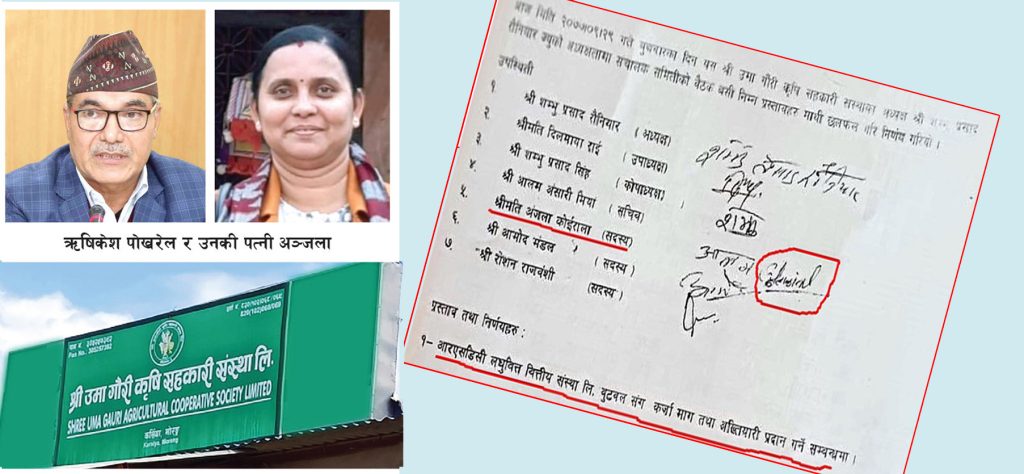 ऋषिकेश पोखरेल र उनकी पत्नी अञ्जला
श्री उमा गौरी कृषि सहकारी संस्था लि.
SHREE UMA GAURI AGRICULTURAL COOPERATIVE SOCIETY LIMITED
कर्सिया, मोरङ्ग
Karsiya, Morang
आज मिति २०७५।०९।२९ गते बुधवारका दिन यस श्री उमा गौरी कृषि सहकारी संस्थाका अध्यक्ष श्री शम्भु प्रसाद
रौनियार ज्यूको अध्यक्षतामा संचालक समितीको बैठक बसी निम्न प्रस्तावहरु माथी छलफल गरि निर्णय गरियो ।
उपस्थिती
१ श्री शम्भु प्रसाद रौनियार ( अध्यक्ष)
२ श्रीमति दिलमाया राई ( उपाध्यक्ष)
३ श्री शम्भु प्रसाद सिंह ( कोषाध्यक्ष)
४ श्री आलम अंसारी मियां ( सचिव)
५. श्रीमति अंजला कोईराला (सदस्य)
६. श्री आमोद मंडल ( सदस्य)
७. श्री रोशन राजवंशी (सदस्य)
प्रस्ताव तथा निर्णयहरु :
१– आरएसडिसी लघुवित्त वित्तीय संस्था लि. बुटवल संग कर्जा माग तथा अख्तियारी प्रदान गर्ने सम्वन्धमा ।